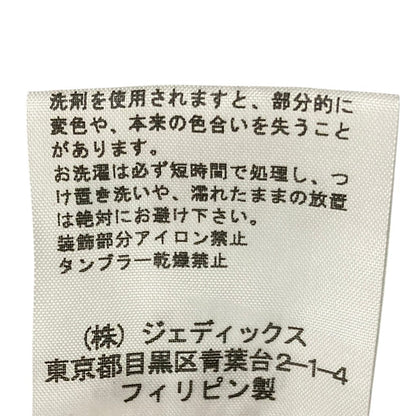 洗剤を使用されますと、部分的に
変色や、本来の色合いを失うこと
があります。
お洗濯は必ず短時間で処理し、つ
け置き洗いや、濡れたままの放置
は絶対にお避け下さい。
装飾部分アイロン禁止
タンブラー乾燥禁止
(株) ジェディックス
東京都目黒区青葉台2-1-4
フィリピン製